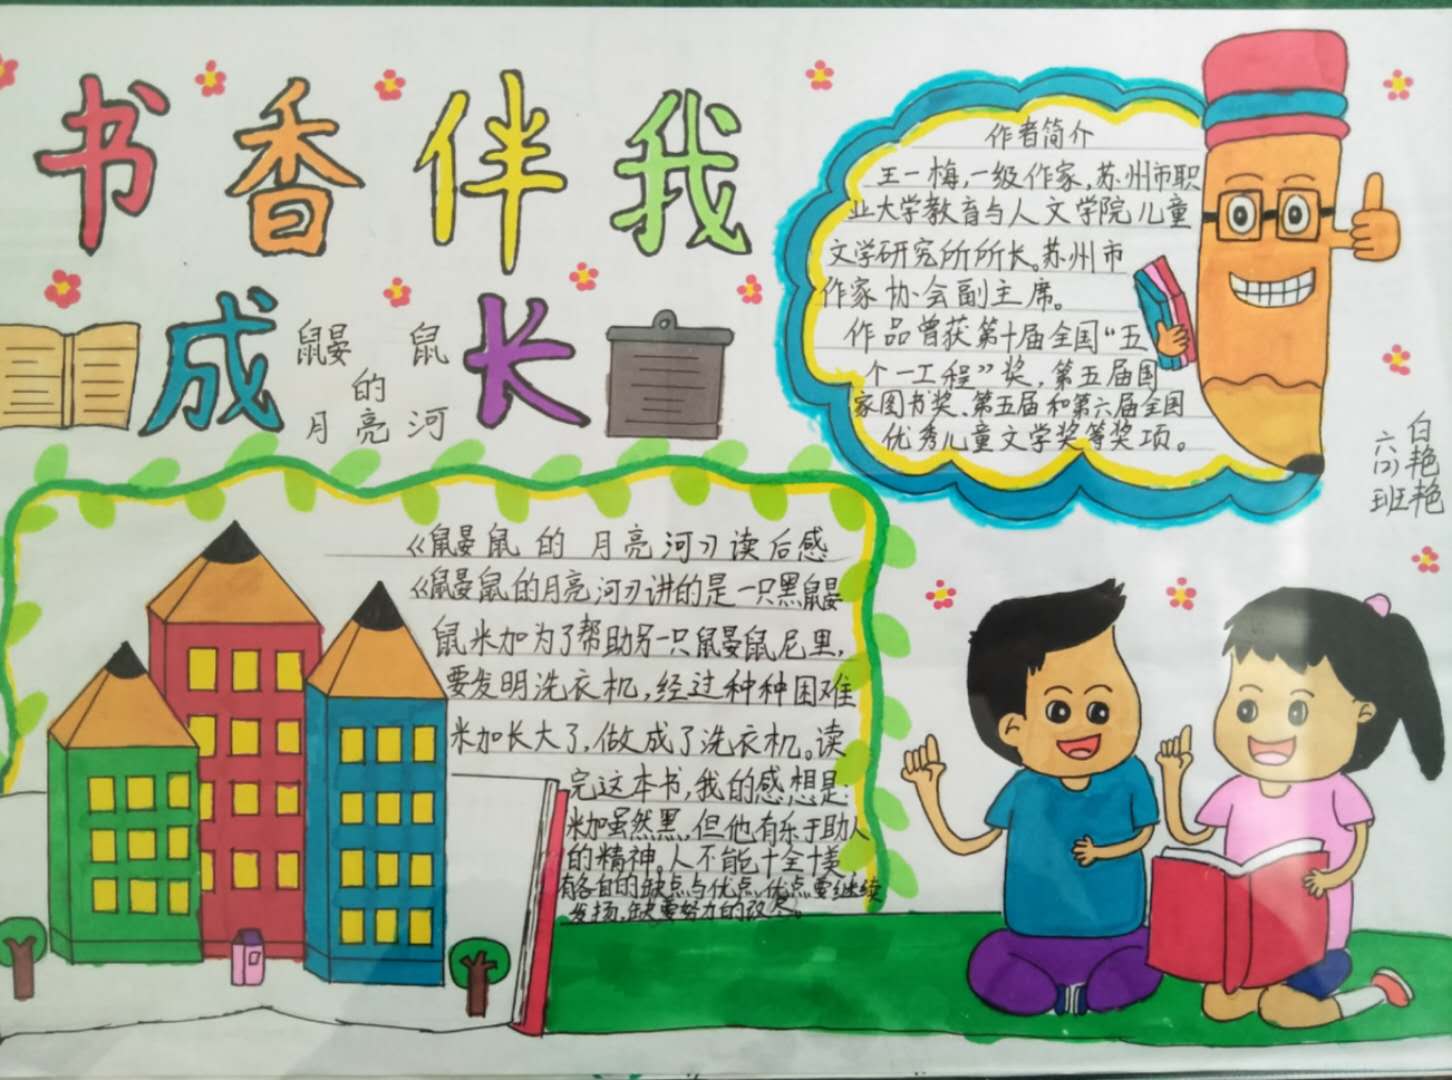 书香伴我
成长
鼹鼠
的
月亮河
作者简介
王一梅,一级作家,苏州市职
业大学教育与人文学院儿童
文学研究所所长。苏州市
作家协会副主席。
作品曾获第十届全国“五
个一工程”奖,第五届国
家图书奖、第五届和第六届全国
优秀儿童文学奖等奖项。
六(2)班
白艳艳
《鼹鼠的月亮河》读后感
《鼹鼠的月亮河》讲的是一只黑鼹
鼠米加为了帮助另一只鼹鼠尼里,
要发明洗衣机,经过种种困难
米加长大了,做成了洗衣机。读
完这本书,我的感想是:
米加虽然黑,但他有乐于助人
的精神。人不能十全十美,
有各自的缺点与优点,优点要继续
发扬,缺要努力的改